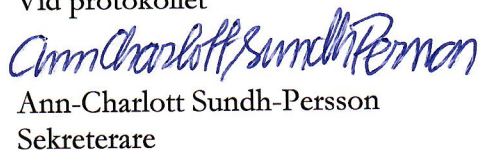 Vid protokollet
Ann Charlott Sundh Persson
Ann-Charlott Sundh-Persson
Sekreterare